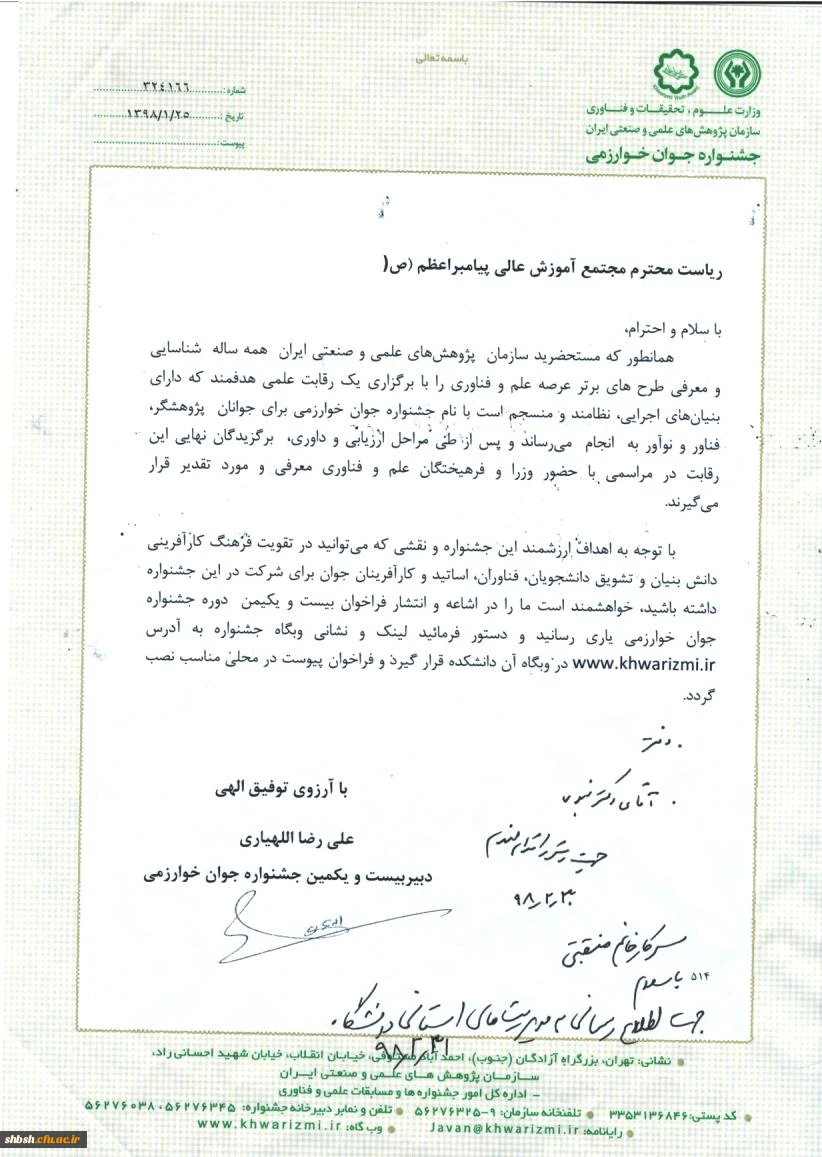 باسمه‌تعالی
وزارت علـــوم، تحقیقـات و فنـاوری
سازمان پژوهش‌های علمی و صنعتی ایران
جشنـواره جـوان خـوارزمی
شماره: ۳۲۴۱۶۶
تاریخ: ۱۳۹۸/۱/۲۵
پیوست:
ریاست محترم مجتمع آموزش عالی پیامبراعظم (ص(
با سلام و احترام،
همانطور که مستحضرید سازمان پژوهش‌های علمی و صنعتی ایران همه ساله شناسایی
و معرفی طرح های برتر عرصه علم و فناوری را با برگزاری یک رقابت علمی هدفمند که دارای
بنیان‌های اجرایی، نظامند و منسجم است با نام جشنواره جوان خوارزمی برای جوانان پژوهشگر،
فناور و نوآور به انجام می‌رساند و پس از طی مراحل ارزیابی و داوری، برگزیدگان نهایی این
رقابت در مراسمی با حضور وزرا و فرهیختگان علم و فناوری معرفی و مورد تقدیر قرار
می‌گیرند.
با توجه به اهداف ارزشمند این جشنواره و نقشی که می‌توانید در تقویت فرهنگ کارآفرینی
دانش بنیان و تشویق دانشجویان، فناوران، اساتید و کارآفرینان جوان برای شرکت در این جشنواره
داشته باشید، خواهشمند است ما را در اشاعه و انتشار فراخوان بیست و یکیمن دوره جشنواره
جوان خوارزمی یاری رسانید و دستور فرمائید لینک و نشانی وبگاه جشنواره به آدرس
www.khwarizmi.ir در وبگاه آن دانشکده قرار گیرد و فراخوان پیوست در محلی مناسب نصب
گردد.
با آرزوی توفیق الهی
علی رضا اللهیاری
دبیربیست و یکمین جشنواره جوان خوارزمی
آقای دکتر
۹۸/۲/۳۰
سرکار خانم منقبتی
۵۱۴ با سلام
جهت اطلاع رسانی به مدیریت های استانی دانشگاه.
۹۸/۲/۳۱
نشانی: تهران، بزرگراه آزادگان (جنوب)، احمد آباد مستوفی، خیابان انقلاب، خیابان شهید احسانی راد،
سـازمـان پژوهش هـای علـمی و صنعتی ایـران
– اداره کل امور جشنواره ها و مسابقات علمی و فناوری
کد پستی: ۳۳۵۳۱۳۶۸۴۶ تلفنخانه سازمان: ۹-۵۶۲۷۶۳۲۵ تلفن و نمابر دبیرخانه جشنواره: ۵۶۲۷۶۰۳۸ ، ۵۶۲۷۶۳۴۵
رایانامه: Javan@khwarizmi.ir وب گاه: www.khwarizmi.ir
shbsh.cfu.ac.ir